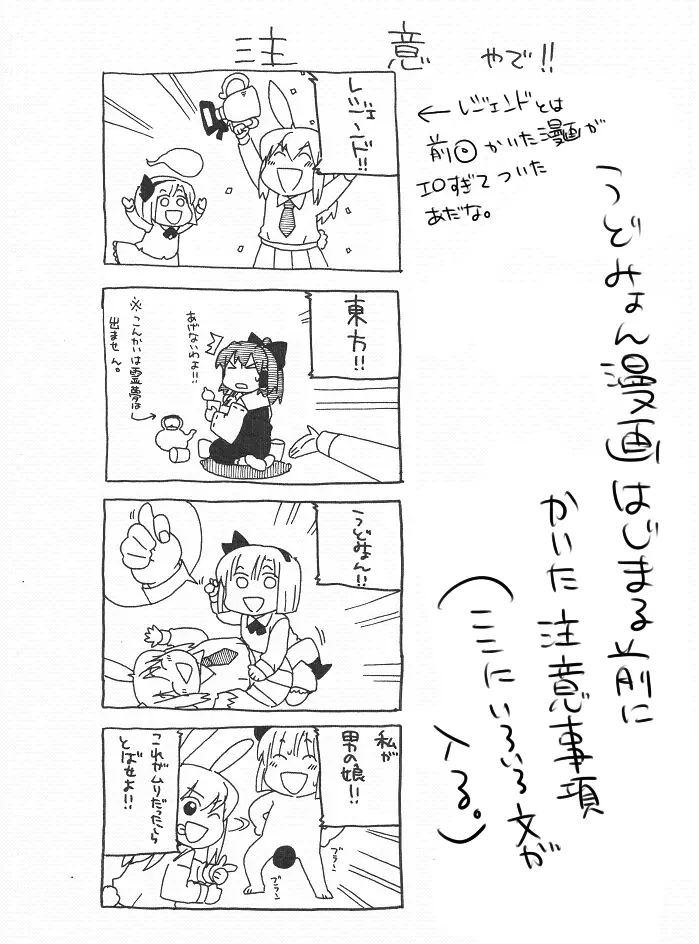 注意 やで!!
レジェンド!!
←レジェンドとは
前回かいた漫画が
エロすぎてついた
あだな。
うどみょん漫画はじまる前に
かいた注意事項
(ここにいろいろ文が
入る。)
東方!!
あげないわよ!!
※こんかいは霊夢は
出ません。
うどみょん!!
私が
男の娘!!
ブラーン
ブラーン
これがムリだったら
とばせよ!!